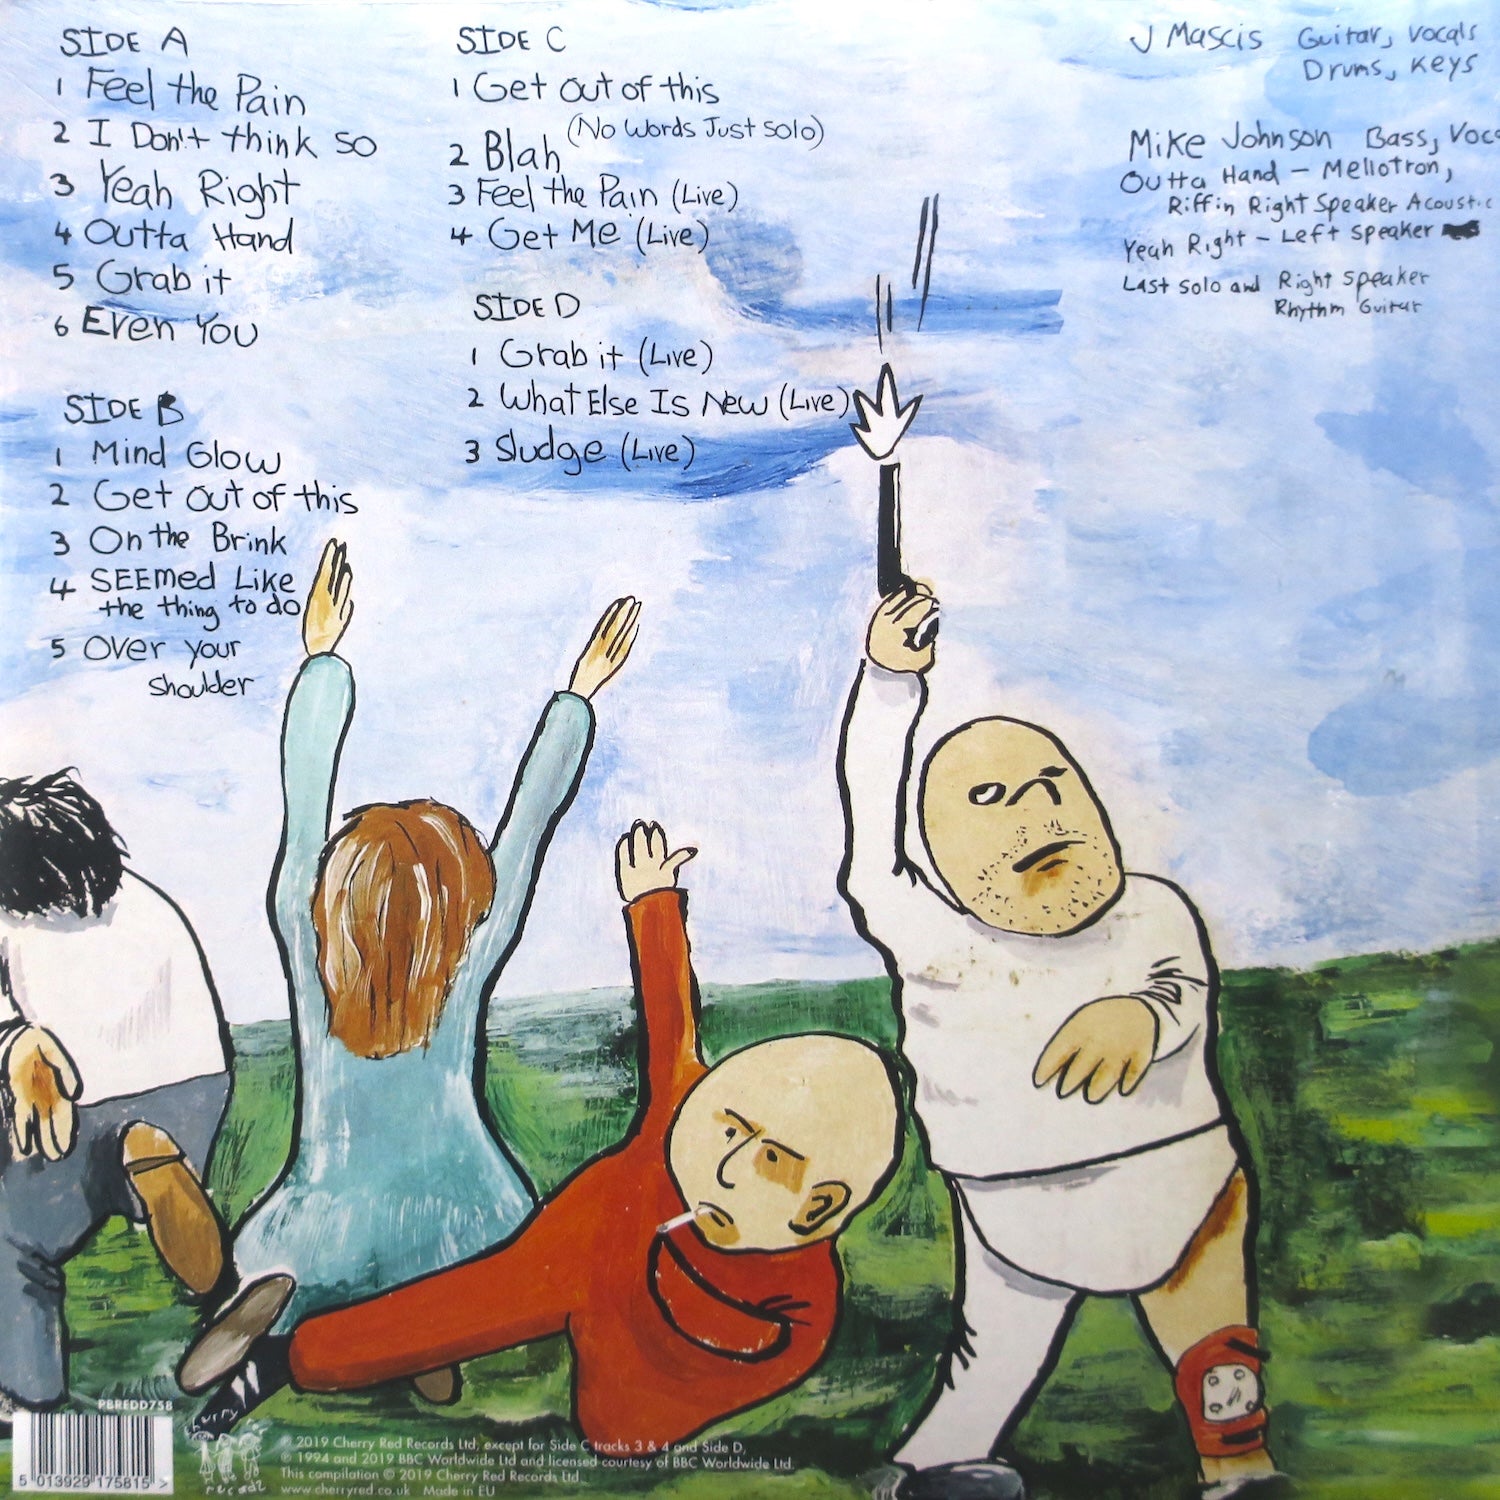 SIDE A
1 Feel the Pain
2 I Don't think so
3 Yeah Right
4 Outta Hand
5 Grab it
6 Even You
SIDE B
1 Mind Glow
2 Get out of this
3 On the Brink
4 SEEmed Like
the thing to do
5 Over your
shoulder
SIDE C
1 Get out of this
(No Words Just Solo)
2 Blah
3 Feel the Pain (Live)
4 Get Me (Live)
SIDE D
1 Grab it (Live)
2 What Else Is New (Live)
3 Sludge (Live)
J Mascis Guitar, Vocals
Drums, Keys
Mike Johnson Bass,
Outta Hand – Mellotron,
Riffin Right Speaker Acoustic
Yeah Right – Left Speaker
Last solo and Right Speaker
Rhythm Guitar
PBREDD758
5 013929 175815 >
cherry
red
records
℗ 2019 Cherry Red Records Ltd, except for Side C tracks 3 & 4 and Side D,
℗ 1994 and 2019 BBC Worldwide Ltd and licensed courtesy of BBC Worldwide Ltd.
This compilation ℗ © 2019 Cherry Red Records Ltd.
www.cherryred.co.uk Made in EU